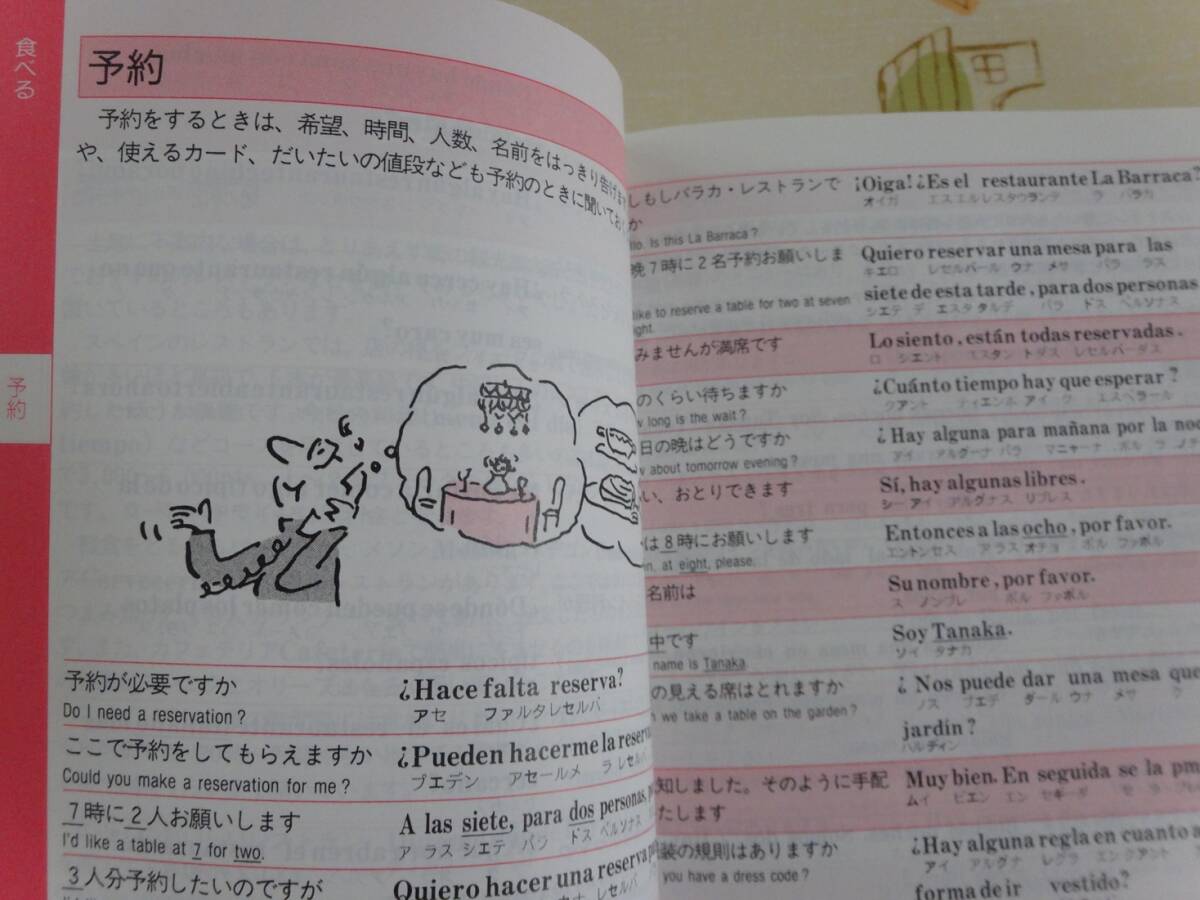 食べる
予約
予約
予約をするときは、希望、時間、人数、名前をはっきり告げ
や、使えるカード、だいたいの値段なども予約のときに聞いてお
予約が必要ですか
¿Hace falta reserva?
Do I need a reservation ?
アセ ファルタレセルバ
ここで予約をしてもらえますか
¿Pueden hacerme la reser
Could you make a reservation for me ?
プエデン アセールメ ラ レセル
7時に2人お願いします
A las siete, para dos personas
I'd like a table at 7 for two.
ア ラス シエテ パラ ドス ペルソナス
3人分予約したいのですが
Quiero hacer una reserva
しもしバラカ・レストランで
¡Oiga! ¿Es el restaurante La Barraca?
か
オイガ エスエルレスタウランテ ラ バラカ
lo. Is this La Barraca ?
晩7時に2名予約お願いしま
Quiero reservar una mesa para las
キエロ レセルバール ウナ メサ パラ ラス
like to reserve a table for two at seven
siete de esta tarde, para dos personas
ght.
シエテ デ エスタ タルデ パラ ドス ペルソナス
みませんが満席です
Lo siento, están todas reservadas.
ロ シエント エスタン トダス レセルバーダス
のくらい待ちますか
¿Cuánto tiempo hay que esperar ?
long is the wait ?
クアント ティエンポ アイ ケ エスペラール
日の晩はどうですか
¿ Hay alguna para mañana por la no
about tomorrow evening ?
アイ アルグーナ パラ マニャーナ ポル ラ
い、おとりできます
Sí, hay algunas libres.
シー アイ アルグナス リブレス
は8時にお願いします
Entonces a las ocho, por favor.
n, at eight, please.
エントンセス ア ラス オチョ ポル ファボル
名前は
Su nombre, por favor.
ス ノンブレ ポル ファボル
中です
Soy Tanaka.
name is Tanaka.
ソイ タナカ
の見える席はとれますか
¿ Nos puede dar una mesa que
we take a table on the garden ?
ノス プエデ ダール ウナ メサ ケ
jardín ?
ハルディン
知しました。そのように手配
Muy bien. En seguida se la
たします
ムイ ビエン エン セギーダ セ ラ
装の規則はありますか
¿Hay alguna regla en cuanto a
you have a dress code ?
アイ アルグナ レグラ エン クアント ア
forma de ir vestido?